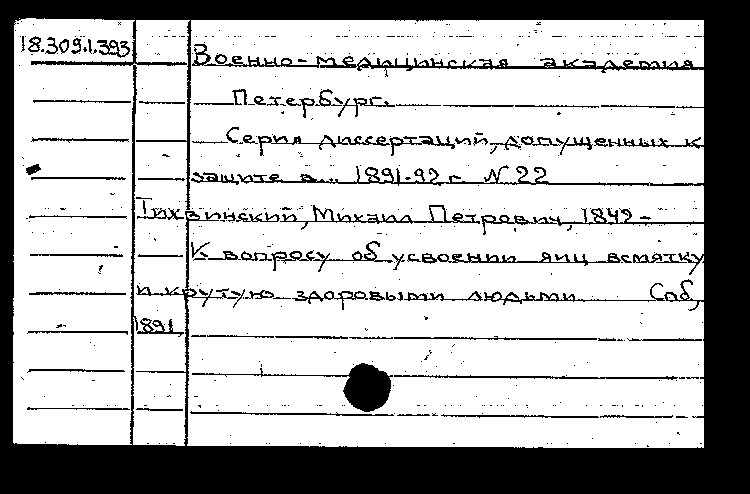 18.309.1.393
Военно-медицинская академия
Петербург.
Серия диссертаций, допущенных к
защите в... 1891-92 г. N 22
Тихвинский, Михаил Петрович, 1849 -
К вопросу об усвоении яиц всмятку
и крутую здоровыми людьми. Спб,
1891.